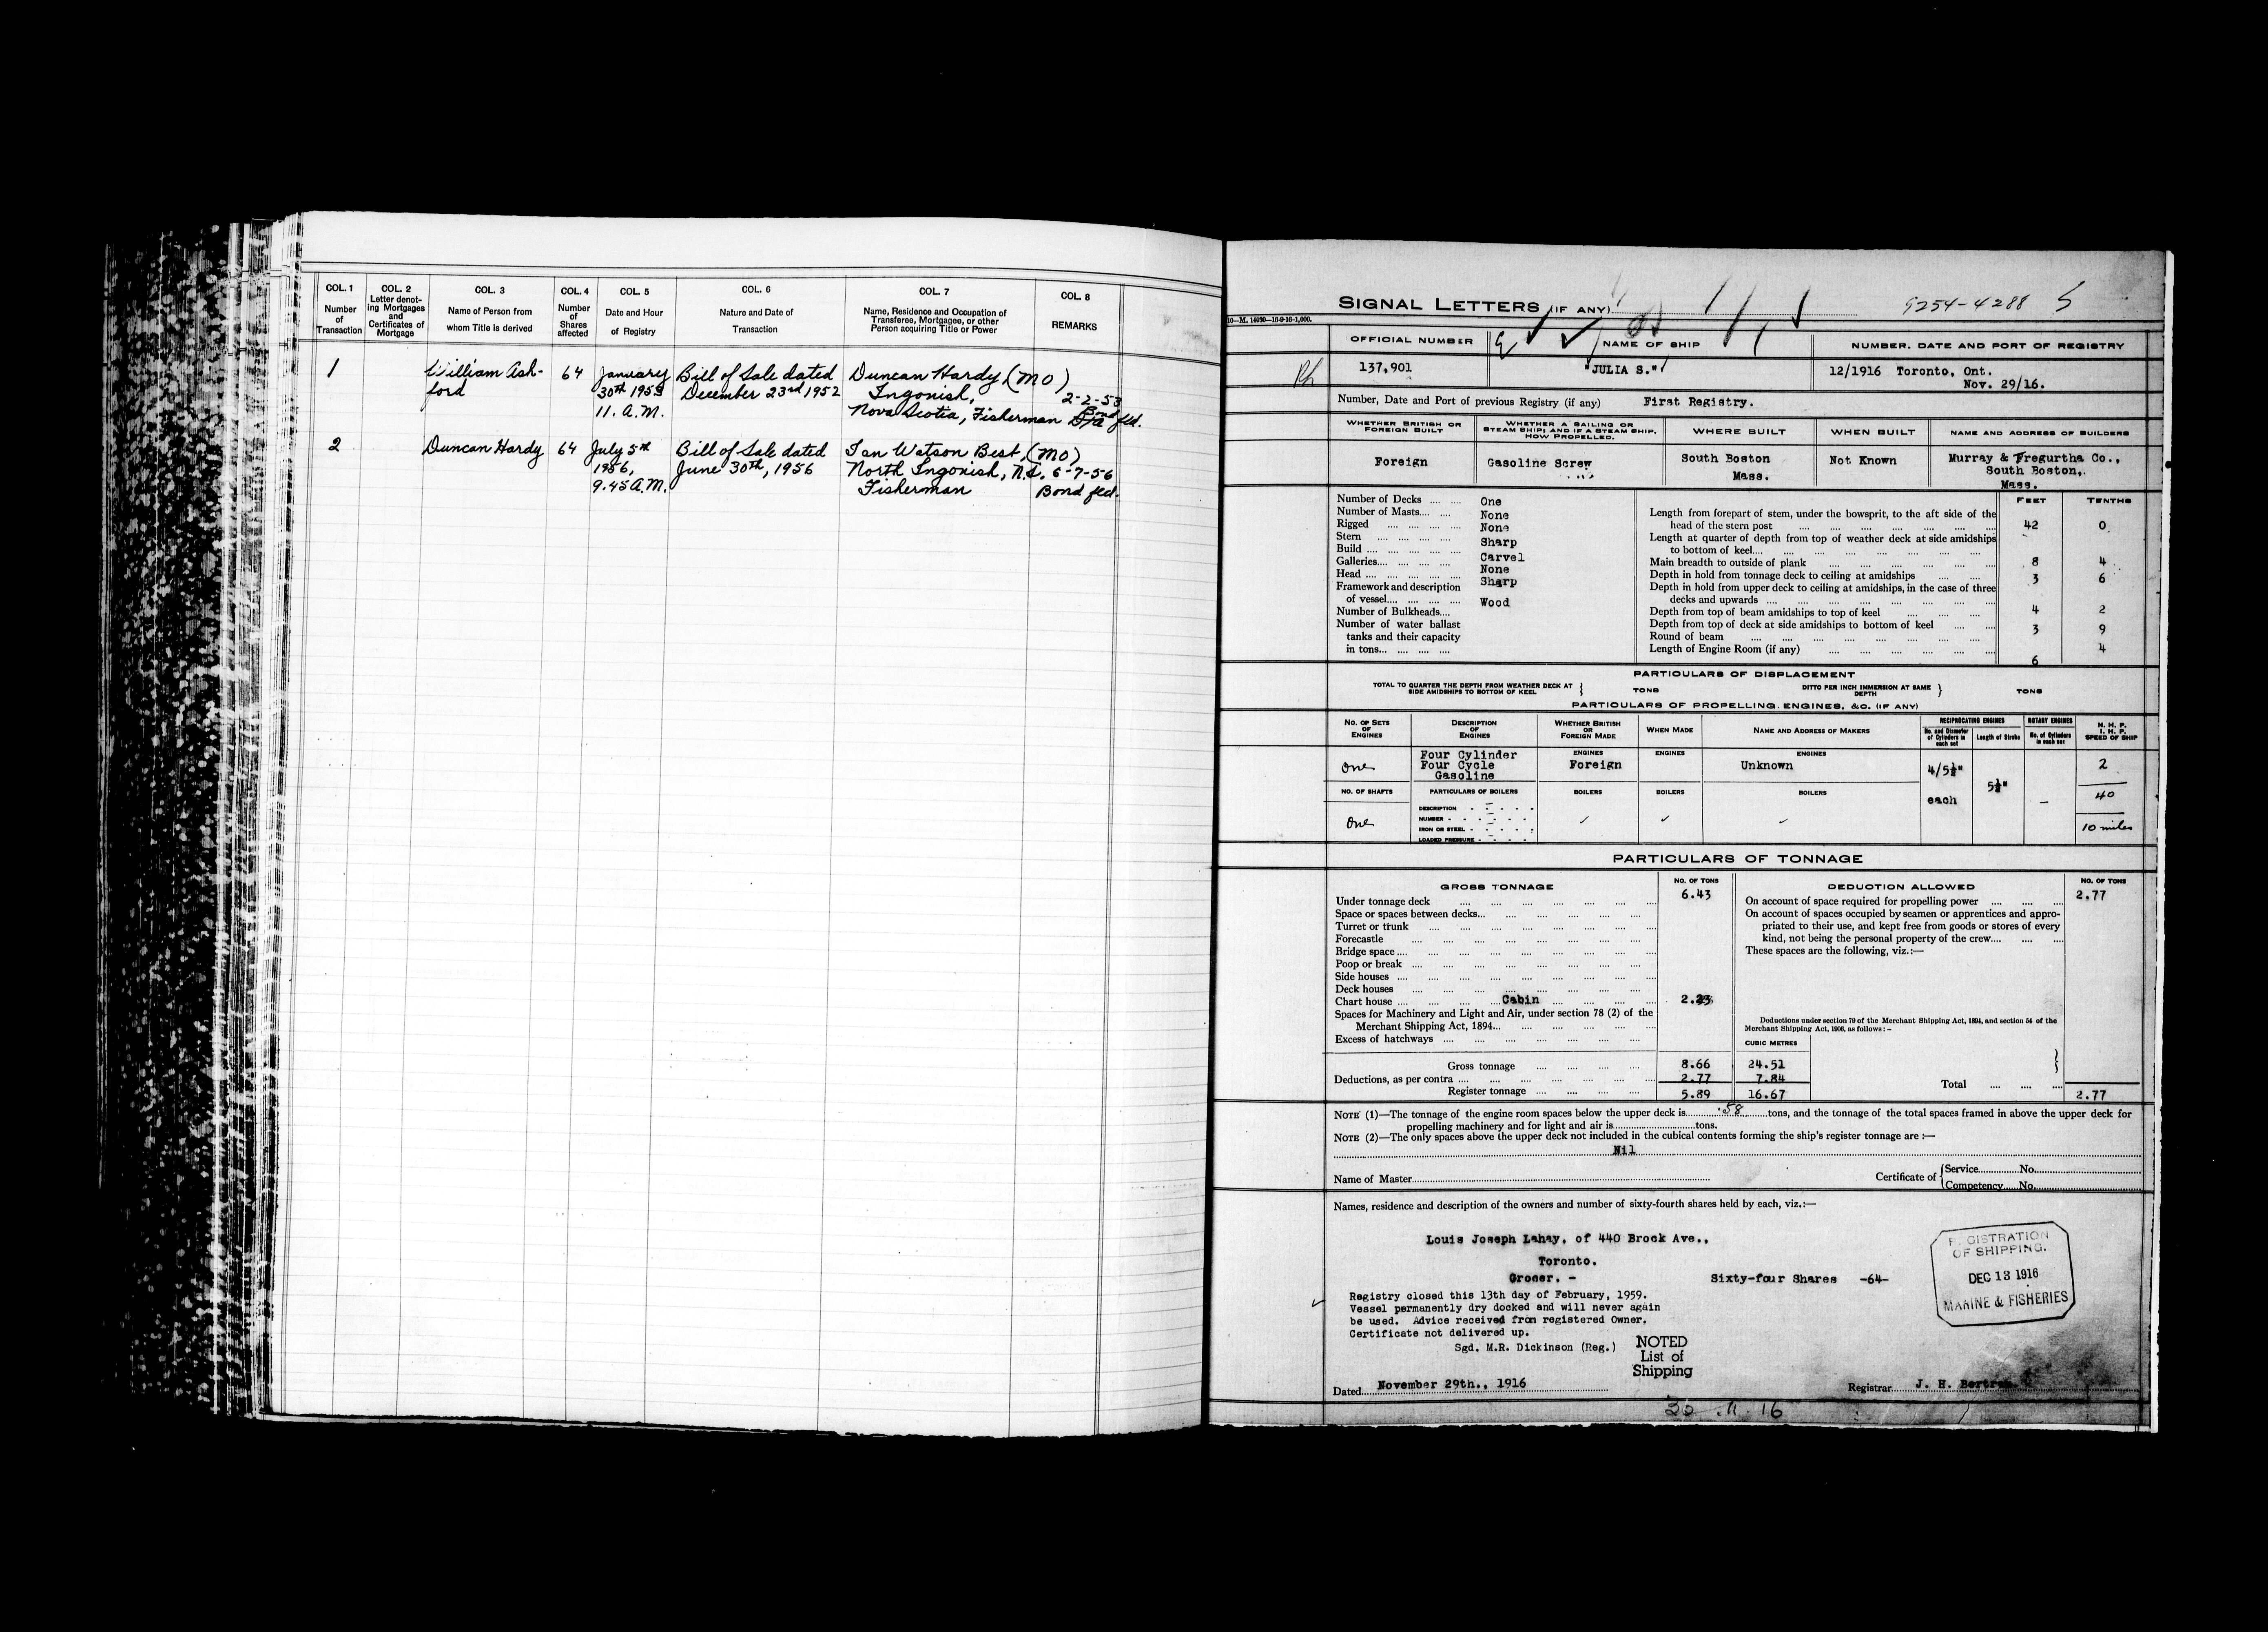 COL. 1 COL. 2 COL. 3 COL. 4 COL. 5 COL. 6 COL. 7 COL. 8
Number of Transaction
Letter denoting Mortgages and Certificates of Mortgage
Name of Person from whom Title is derived
Number of Shares affected
Date and Hour of Registry
Nature and Date of Transaction
Name, Residence and Occupation of Transferee, Mortgagee, or other Person acquiring Title or Power
REMARKS
1 William Ash- 64 January Bill of Sale dated Duncan Hardy (MO)
ford 30th 1953 December 23rd 1952 Ingonish, 2-2-53
11. A.M. Nova Scotia, Fisherman Bond fld.
2 Duncan Hardy 64 July 5th Bill of Sale dated Ian Watson Best, (MO)
1956, June 30th, 1956 North Ingonish, N.S. 6-7-56
9.45 A.M. Fisherman Bond fld.
SIGNAL LETTERS (IF ANY) 9254-4288 S
10—M. 14930—16-9-16-1,000.
OFFICIAL NUMBER NAME OF SHIP NUMBER, DATE AND PORT OF REGISTRY
137,901 "JULIA S." 12/1916 Toronto, Ont.
Nov. 29/16.
Number, Date and Port of previous Registry (if any) First Registry.
WHETHER BRITISH OR FOREIGN BUILT
WHETHER A SAILING OR STEAM SHIP; AND IF A STEAM SHIP, HOW PROPELLED.
WHERE BUILT WHEN BUILT NAME AND ADDRESS OF BUILDERS
Foreign Gasoline Screw South Boston Not Known Murray & Tregurtha Co.,
Mass. South Boston,
Mass.
FEET TENTHS
Number of Decks One
Number of Masts None
Rigged None
Stern Sharp
Build Carvel
Galleries None
Head Sharp
Framework and description
of vessel Wood
Number of Bulkheads
Number of water ballast
tanks and their capacity
in tons
Length from forepart of stem, under the bowsprit, to the aft side of the
head of the stern post 42 0
Length at quarter of depth from top of weather deck at side amidships
to bottom of keel
Main breadth to outside of plank 8 4
Depth in hold from tonnage deck to ceiling at amidships 3 6
Depth in hold from upper deck to ceiling at amidships, in the case of three
decks and upwards
Depth from top of beam amidships to top of keel 4 2
Depth from top of deck at side amidships to bottom of keel 3 9
Round of beam 4
Length of Engine Room (if any) 6
PARTICULARS OF DISPLACEMENT
TOTAL TO QUARTER THE DEPTH FROM WEATHER DECK AT SIDE AMIDSHIPS TO BOTTOM OF KEEL TONS DITTO PER INCH IMMERSION AT SAME DEPTH TONS
PARTICULARS OF PROPELLING ENGINES, &C. (IF ANY)
NO. OF SETS OF ENGINES
DESCRIPTION OF ENGINES
WHETHER BRITISH OR FOREIGN MADE
WHEN MADE
NAME AND ADDRESS OF MAKERS
RECIPROCATING ENGINES
No. and Diameter of Cylinders in each set
Length of Stroke
ROTARY ENGINES
No. of Cylinders in each set
N. H. P.
I. H. P.
SPEED OF SHIP
ENGINES ENGINES ENGINES
One Four Cylinder
Four Cycle Foreign Unknown 4/5½" 2
Gasoline
5½"
NO. OF SHAFTS PARTICULARS OF BOILERS BOILERS BOILERS BOILERS each 40
DESCRIPTION
One NUMBER
IRON OR STEEL 10 miles
LOADED PRESSURE
PARTICULARS OF TONNAGE
GROSS TONNAGE NO. OF TONS DEDUCTION ALLOWED NO. OF TONS
Under tonnage deck 6.43
Space or spaces between decks
Turret or trunk
Forecastle
Bridge space
Poop or break
Side houses
Deck houses
Chart house Cabin 2.23
Spaces for Machinery and Light and Air, under section 78 (2) of the
Merchant Shipping Act, 1894
Excess of hatchways
On account of space required for propelling power 2.77
On account of spaces occupied by seamen or apprentices and appro-
priated to their use, and kept free from goods or stores of every
kind, not being the personal property of the crew
These spaces are the following, viz.:—
Deductions under section 79 of the Merchant Shipping Act, 1894, and section 54 of the
Merchant Shipping Act, 1906, as follows:—
CUBIC METRES
Gross tonnage 8.66 24.51
Deductions, as per contra 2.77 7.84
Register tonnage 5.89 16.67
Total 2.77
NOTE (1)—The tonnage of the engine room spaces below the upper deck is .58 tons, and the tonnage of the total spaces framed in above the upper deck for
propelling machinery and for light and air is tons.
NOTE (2)—The only spaces above the upper deck not included in the cubical contents forming the ship's register tonnage are :—
Nil
Name of Master
Certificate of Service No.
Competency No.
Names, residence and description of the owners and number of sixty-fourth shares held by each, viz.:—
Louis Joseph Lahay, of 440 Brock Ave.,
Toronto.
Grocer. - Sixty-four Shares -64-
Registry closed this 13th day of February, 1959.
Vessel permanently dry docked and will never again
be used. Advice received from registered Owner.
Certificate not delivered up.
Sgd. M.R. Dickinson (Reg.)
NOTED
List of
Shipping
REGISTRATION
OF SHIPPING.
DEC 13 1916
MARINE & FISHERIES
Dated November 29th., 1916 Registrar J. H. Bertram
30 . 11 . 16